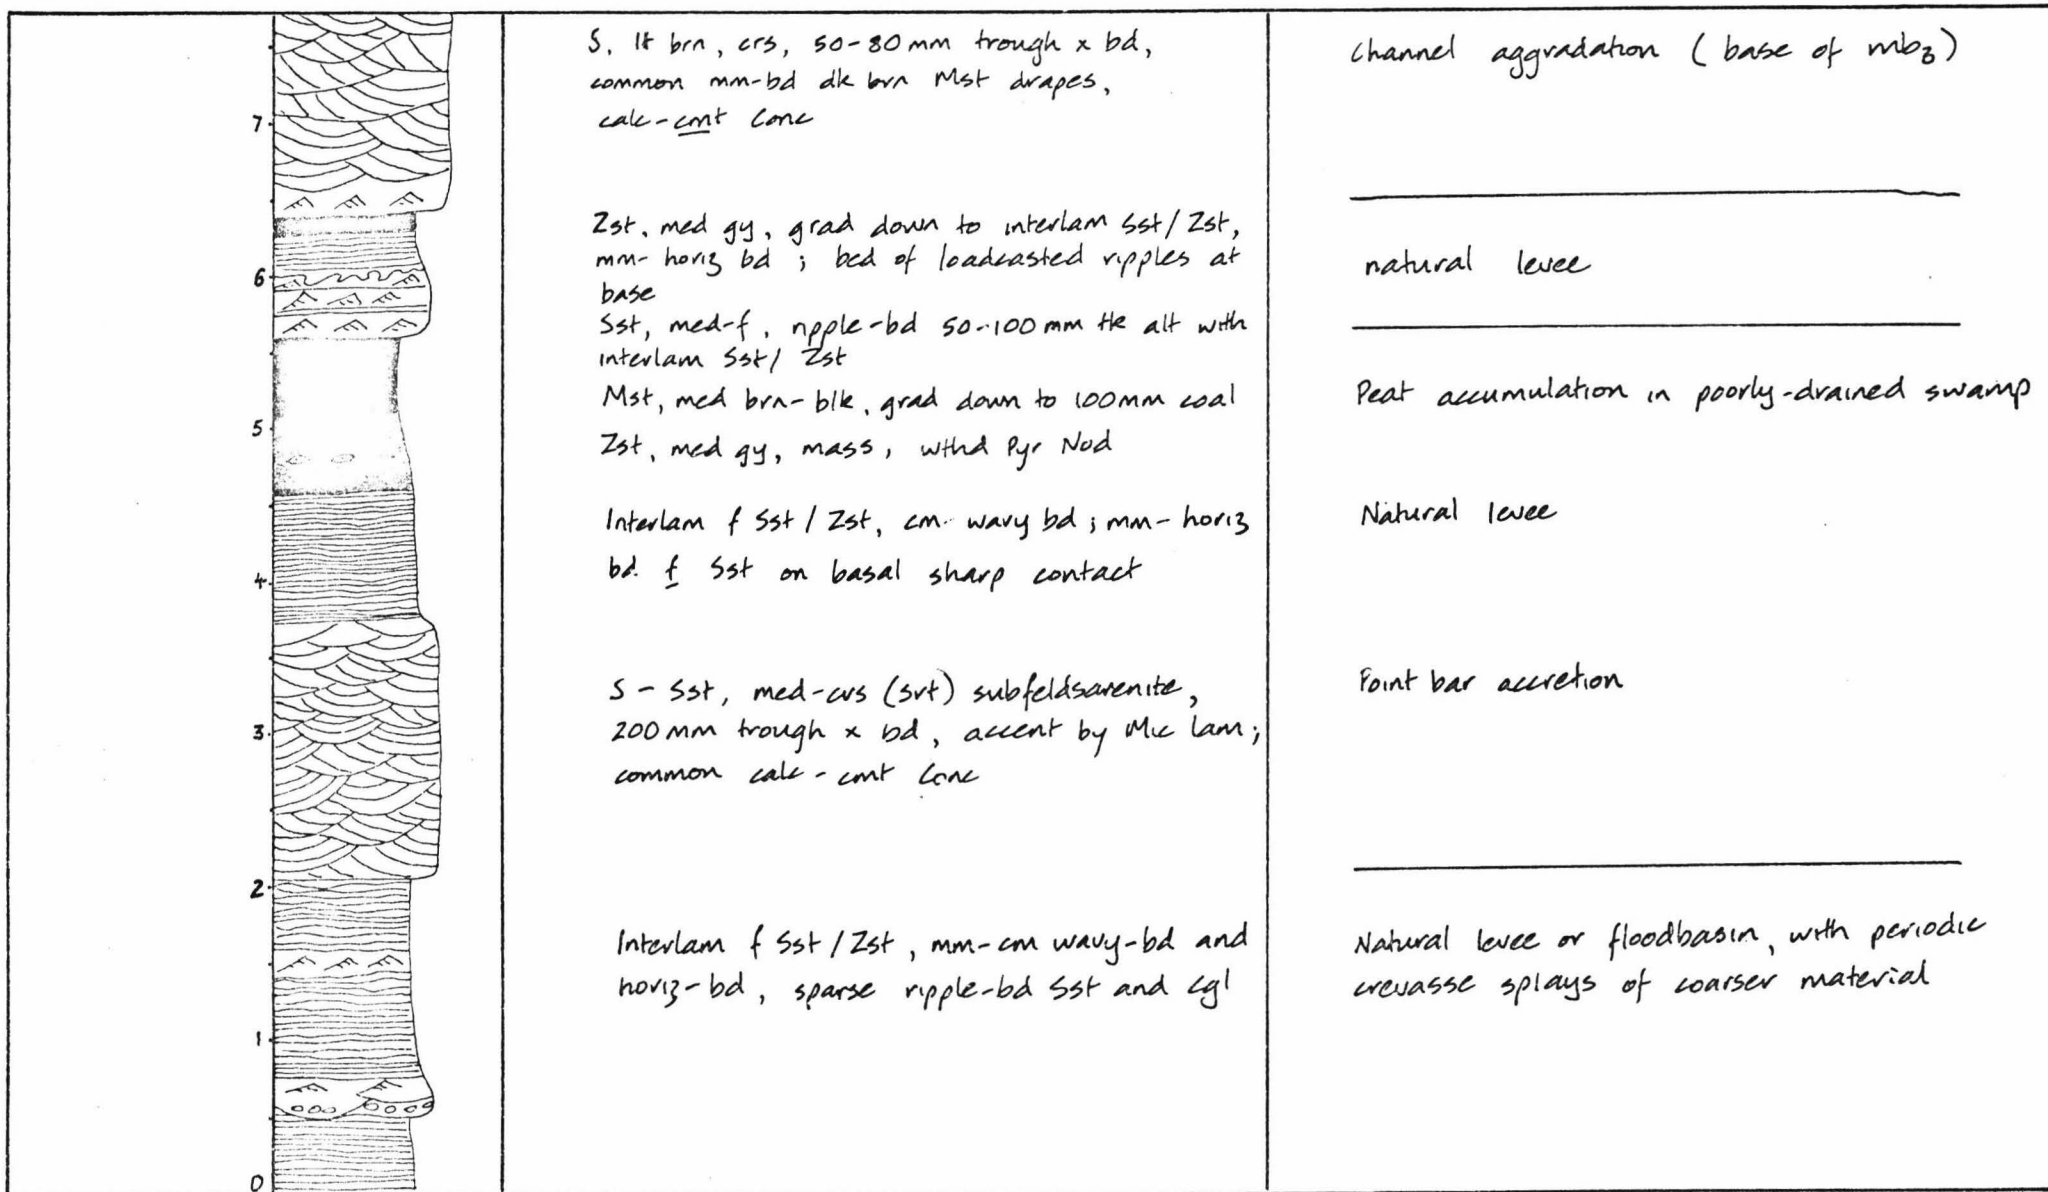 7
6
5
4
3
2
1
0
S, lt brn, crs, 50-80mm trough x bd,
common mm-bd dk brn Mst drapes,
calc-cmt Conc
Zst, med gy, grad down to interlam Sst/Zst,
mm-horiz bd ; bed of loadcasted ripples at
base
Sst, med-f, ripple-bd 50-100mm tk alt with
interlam Sst/ Zst
Mst, med brn-blk, grad down to 100mm coal
Zst, med gy, mass, wthd Pyr Nod
Interlam f Sst / Zst, cm-wavy bd ; mm-horiz
bd f Sst on basal sharp contact
S - Sst, med-crs (srt) subfeldsarenite,
200mm trough x bd, accent by Mic lam;
common calc-cmt Conc
Interlam f Sst/Zst, mm-cm wavy-bd and
horiz-bd, sparse ripple-bd Sst and Cgl
Channel aggradation ( base of mb3 )
natural levee
Peat accumulation in poorly-drained swamp
Natural levee
Point bar accretion
Natural levee or floodbasin, with periodic
crevasse splays of coarser material